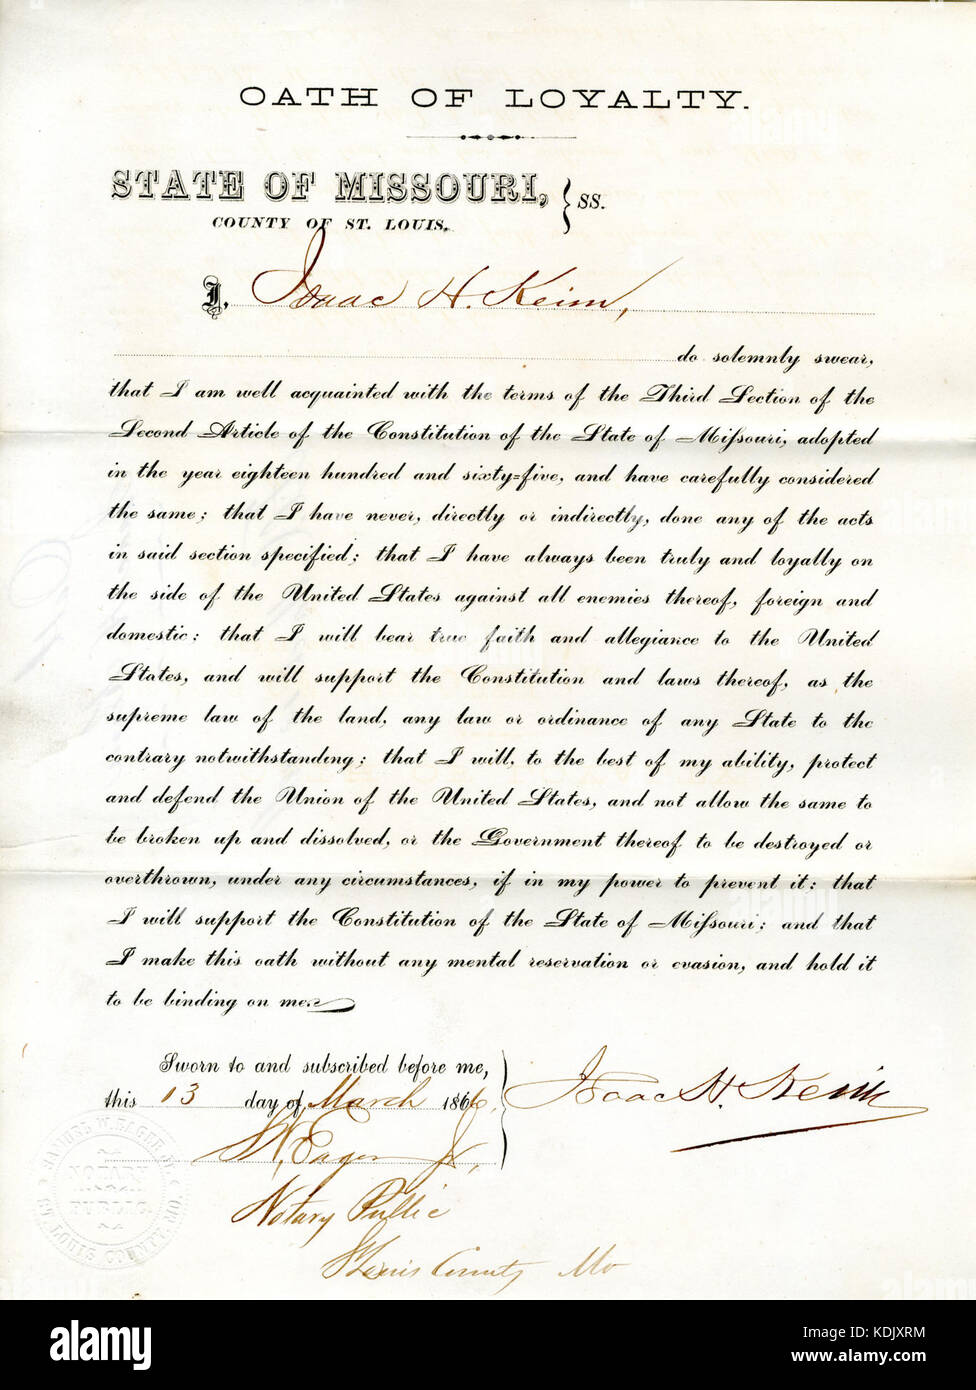 OATH OF LOYALTY.
STATE OF MISSOURI, } SS.
COUNTY OF ST. LOUIS.
I, Isaac H. Keim,
do solemnly swear,
that I am well acquainted with the terms of the Third Section of the
Second Article of the Constitution of the State of Missouri, adopted
in the year eighteen hundred and sixty=five, and have carefully considered
the same; that I have never, directly or indirectly, done any of the acts
in said section specified; that I have always been truly and loyally on
the side of the United States against all enemies thereof, foreign and
domestic: that I will bear true faith and allegiance to the United
States, and will support the Constitution and laws thereof, as the
supreme law of the land, any law or ordinance of any State to the
contrary notwithstanding; that I will, to the best of my ability, protect
and defend the Union of the United States, and not allow the same to
be broken up and dissolved, or the Government thereof to be destroyed or
overthrown, under any circumstances, if in my power to prevent it; that
I will support the Constitution of the State of Missouri; and that
I make this oath without any mental reservation or evasion, and hold it
to be binding on me.
Sworn to and subscribed before me,
this 13 day of March 1866.
Isaac H. Keim
S W. Eager Jr,
Notary Public
St Louis County Mo
SAMUEL W. EAGER JR.
NOTARY
PUBLIC.
ST. LOUIS COUNTY, MO.
alamy
Image ID: KDJXRM
www.alamy.com